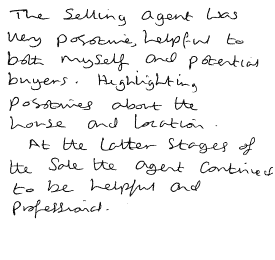 The Selling agent was
very positive, helpful to
both myself and potential
buyers. Highlighting
positives about the
house and location.
At the latter stages of
the Sale the agent continued
to be helpful and
professional.